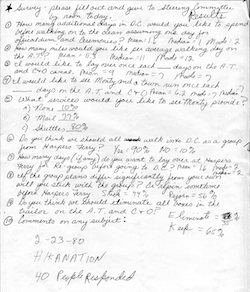 * Survey - please fill out and give to Steering Committee
by noon today. Results
① How many additional days in D.C. would you like to spend
before walking on to the ocean assuming one day for
mean = 1.8 Median = 1 Mode = 2
② How many miles would you like per average walking day on
the A.T. Mean = 11 Median = 11 Mode = 12
③ I would like to lay over once each ___ days on the A.T.
and C+O canal. Mean = 9 Median = 7 Mode = 7
④ I would like to see Monty and a town run once each
___ days on the A.T. and C+O.
⑤ What services would you like to see Monty provide?
a) None 10%
b) Mail 77%
c) Shuttles 80%
⑥ Do you think we should all walk into D.C. as a group
from Harpers Ferry? Yes: 90% No = 10%
⑦ How many days (if any) do you want to lay over at Harpers
Ferry
⑧ If the group plans differ significantly from your own
will you stick with the group? Or rejoin sometime
before Harpers Ferry. Stick = 44% Rejoin = 56%
⑨ Do you think we should eliminate all boxes in the
trailer on the A.T. and C+O? Eliminate =
Keep = 65%
⑩ Comments on any subject:
2-23-80
HIKANATION
40 People Responded